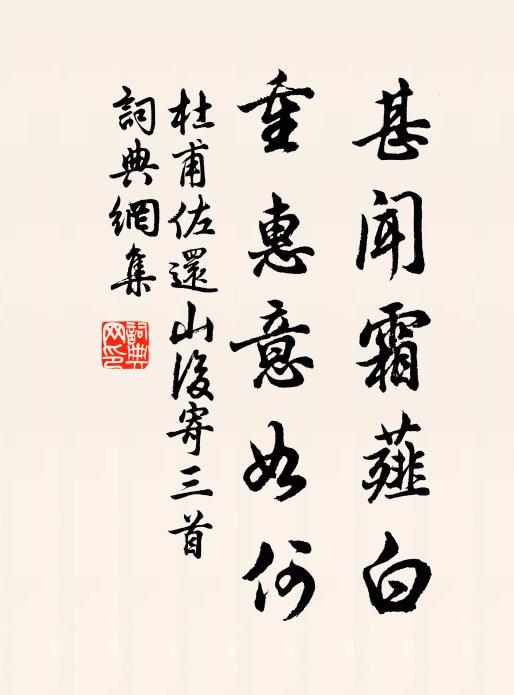 甚聞霜薤白
重惠意如何
杜甫佐還山後寄三首
詞典網集
詞典網印